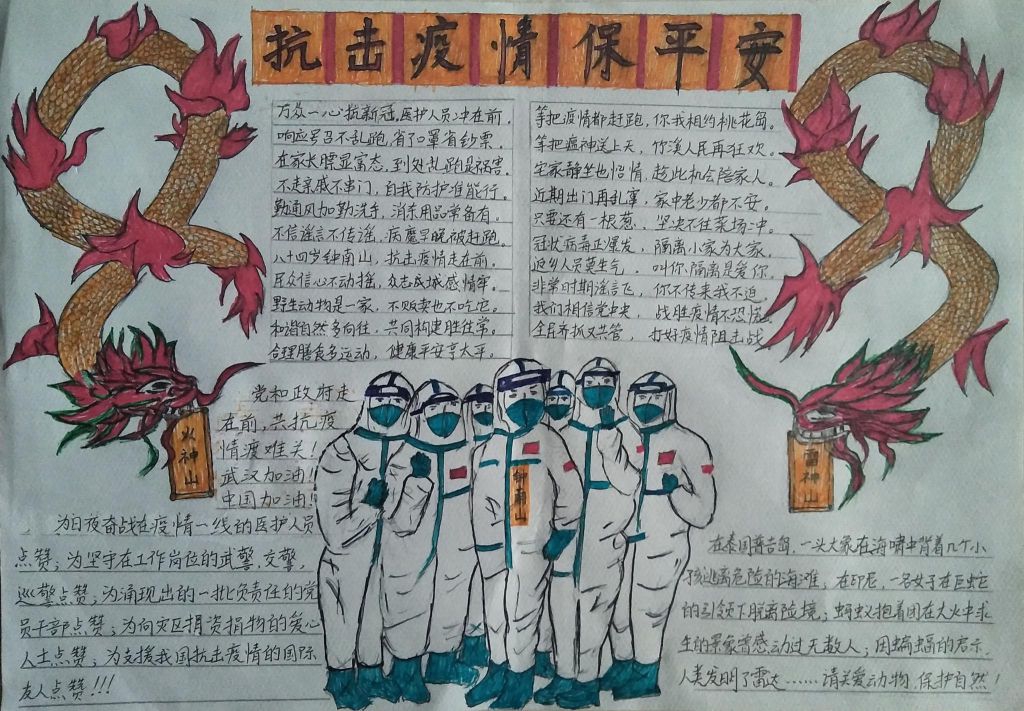 抗击疫情保平安
万众一心抗新冠,医护人员冲在前,
响应号召不乱跑,省了口罩省钞票。
在家长膘显富态,到处乱跑是祸害。
不走亲戚不串门,自我防护准能行。
勤通风加勤洗手,消杀用品常备有。
不信谣言不传谣,病魔早晚被赶跑。
八十四岁钟南山,抗击疫情走在前。
民众信心不动摇,众志成城感情牢。
野生动物是一家,不贩卖也不吃它。
和谐自然多向往,共同构建胜往常。
合理膳食多运动,健康平安享太平。
等把疫情都赶跑,你我相约桃花岛。
等把瘟神送上天,竹溪人民再狂欢。
宅家静坐也怡情,趁此机会陪家人。
近期出门再乱窜,家中老少都不安。
只要还有一根葱,坚决不往菜场冲。
冠状病毒正爆发,隔离小家为大家,
返乡人员莫生气,叫你隔离是爱你。
非常时期谣言飞,你不传来我不追,
我们相信党中央,战胜疫情不恐慌。
全民齐抓又共管,打好疫情阻击战
党和政府走
在前,共抗疫
情渡难关!
武汉加油!
中国加油!
火神山
钟南山
雷神山
为日夜奋战在疫情一线的医护人员
点赞;为坚守在工作岗位的武警,交警,
巡警点赞;为涌现出的一批负责任的党
员干部点赞;为向灾区捐资捐物的爱心
人士点赞;为支援我国抗击疫情的国际
友人点赞!!!
在泰国普吉岛,一头大象在海啸中背着几个小
孩逃离危险的海滩,在印尼,一名女子在巨蛇
的引领下脱离险境;蚂蚁抱着团在大火中求
生的景象曾感动过无数人;因蝙蝠的启示,
人类发明了雷达……请关爱动物,保护自然!